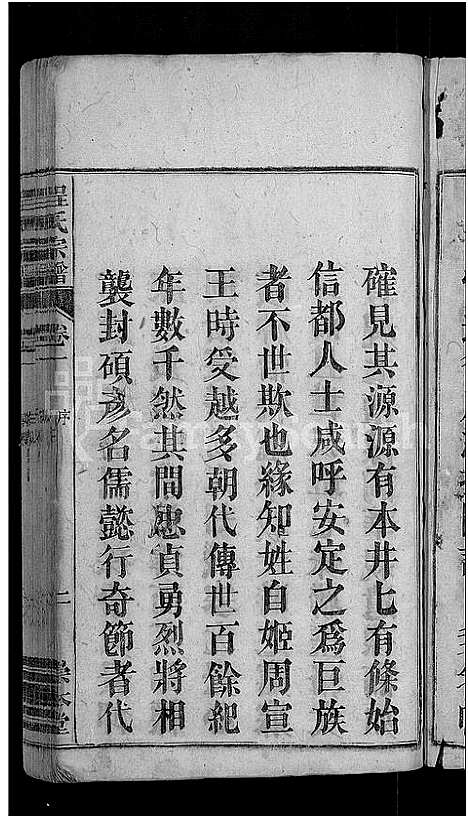 確見其源源有本井匕有條始
信都人士咸呼安定之爲巨族
者不世欺也緣知姓自姬周宣
王時受越多朝代傳世百餘紀
年數千然其間忠貞勇烈將相
襲封碩彥名儒懿行奇節者代
程氏宗譜
卷一
序
二